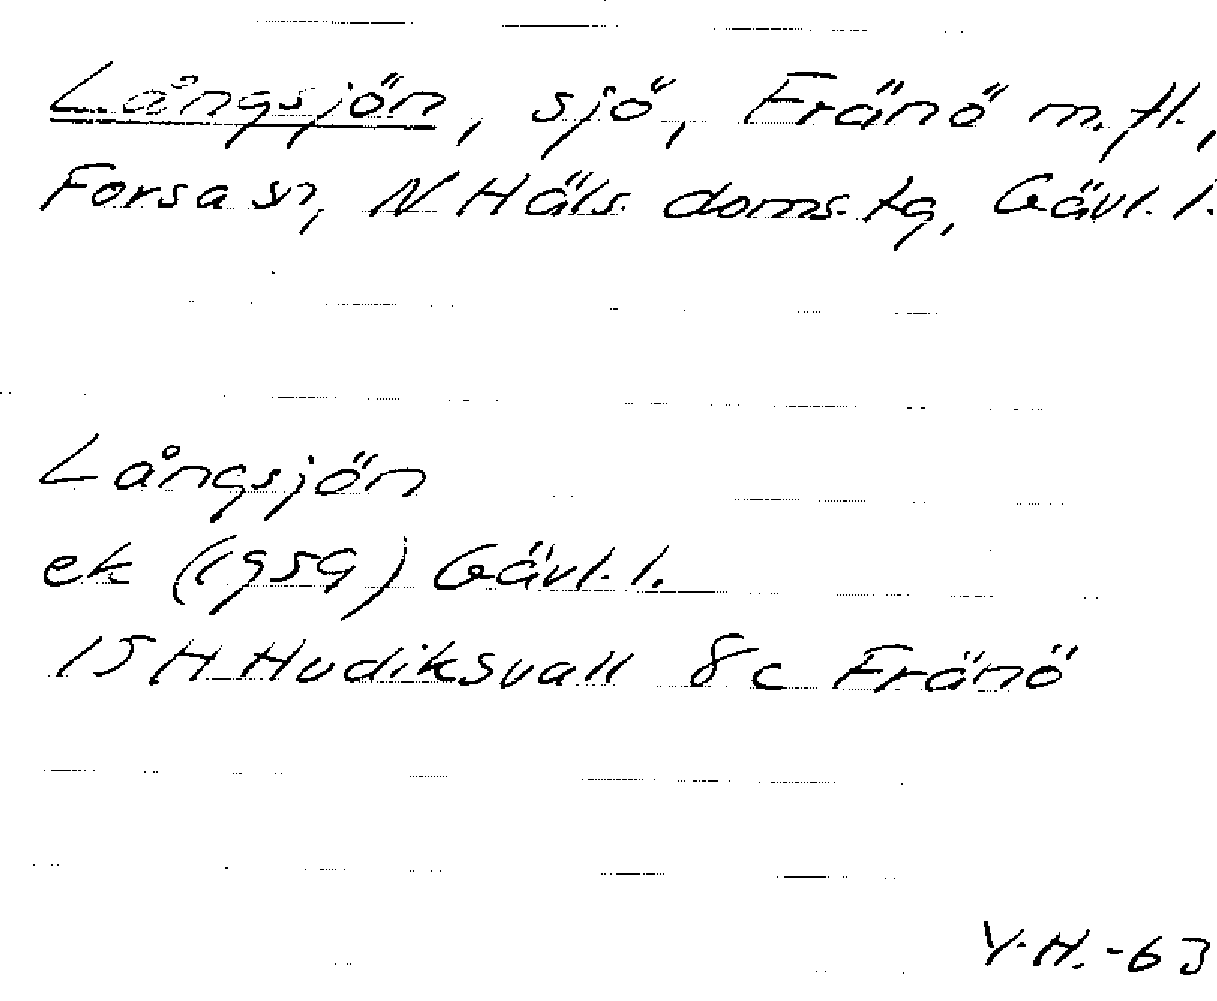 Långsjön, sjö, Fränö m.fl.,
Forsa sn, N Häls. doms.tg, Gävl.l.
Långsjön
ek (1959) Gävl.l.
15H Hudiksvall 8c Fränö
Y.H.-63